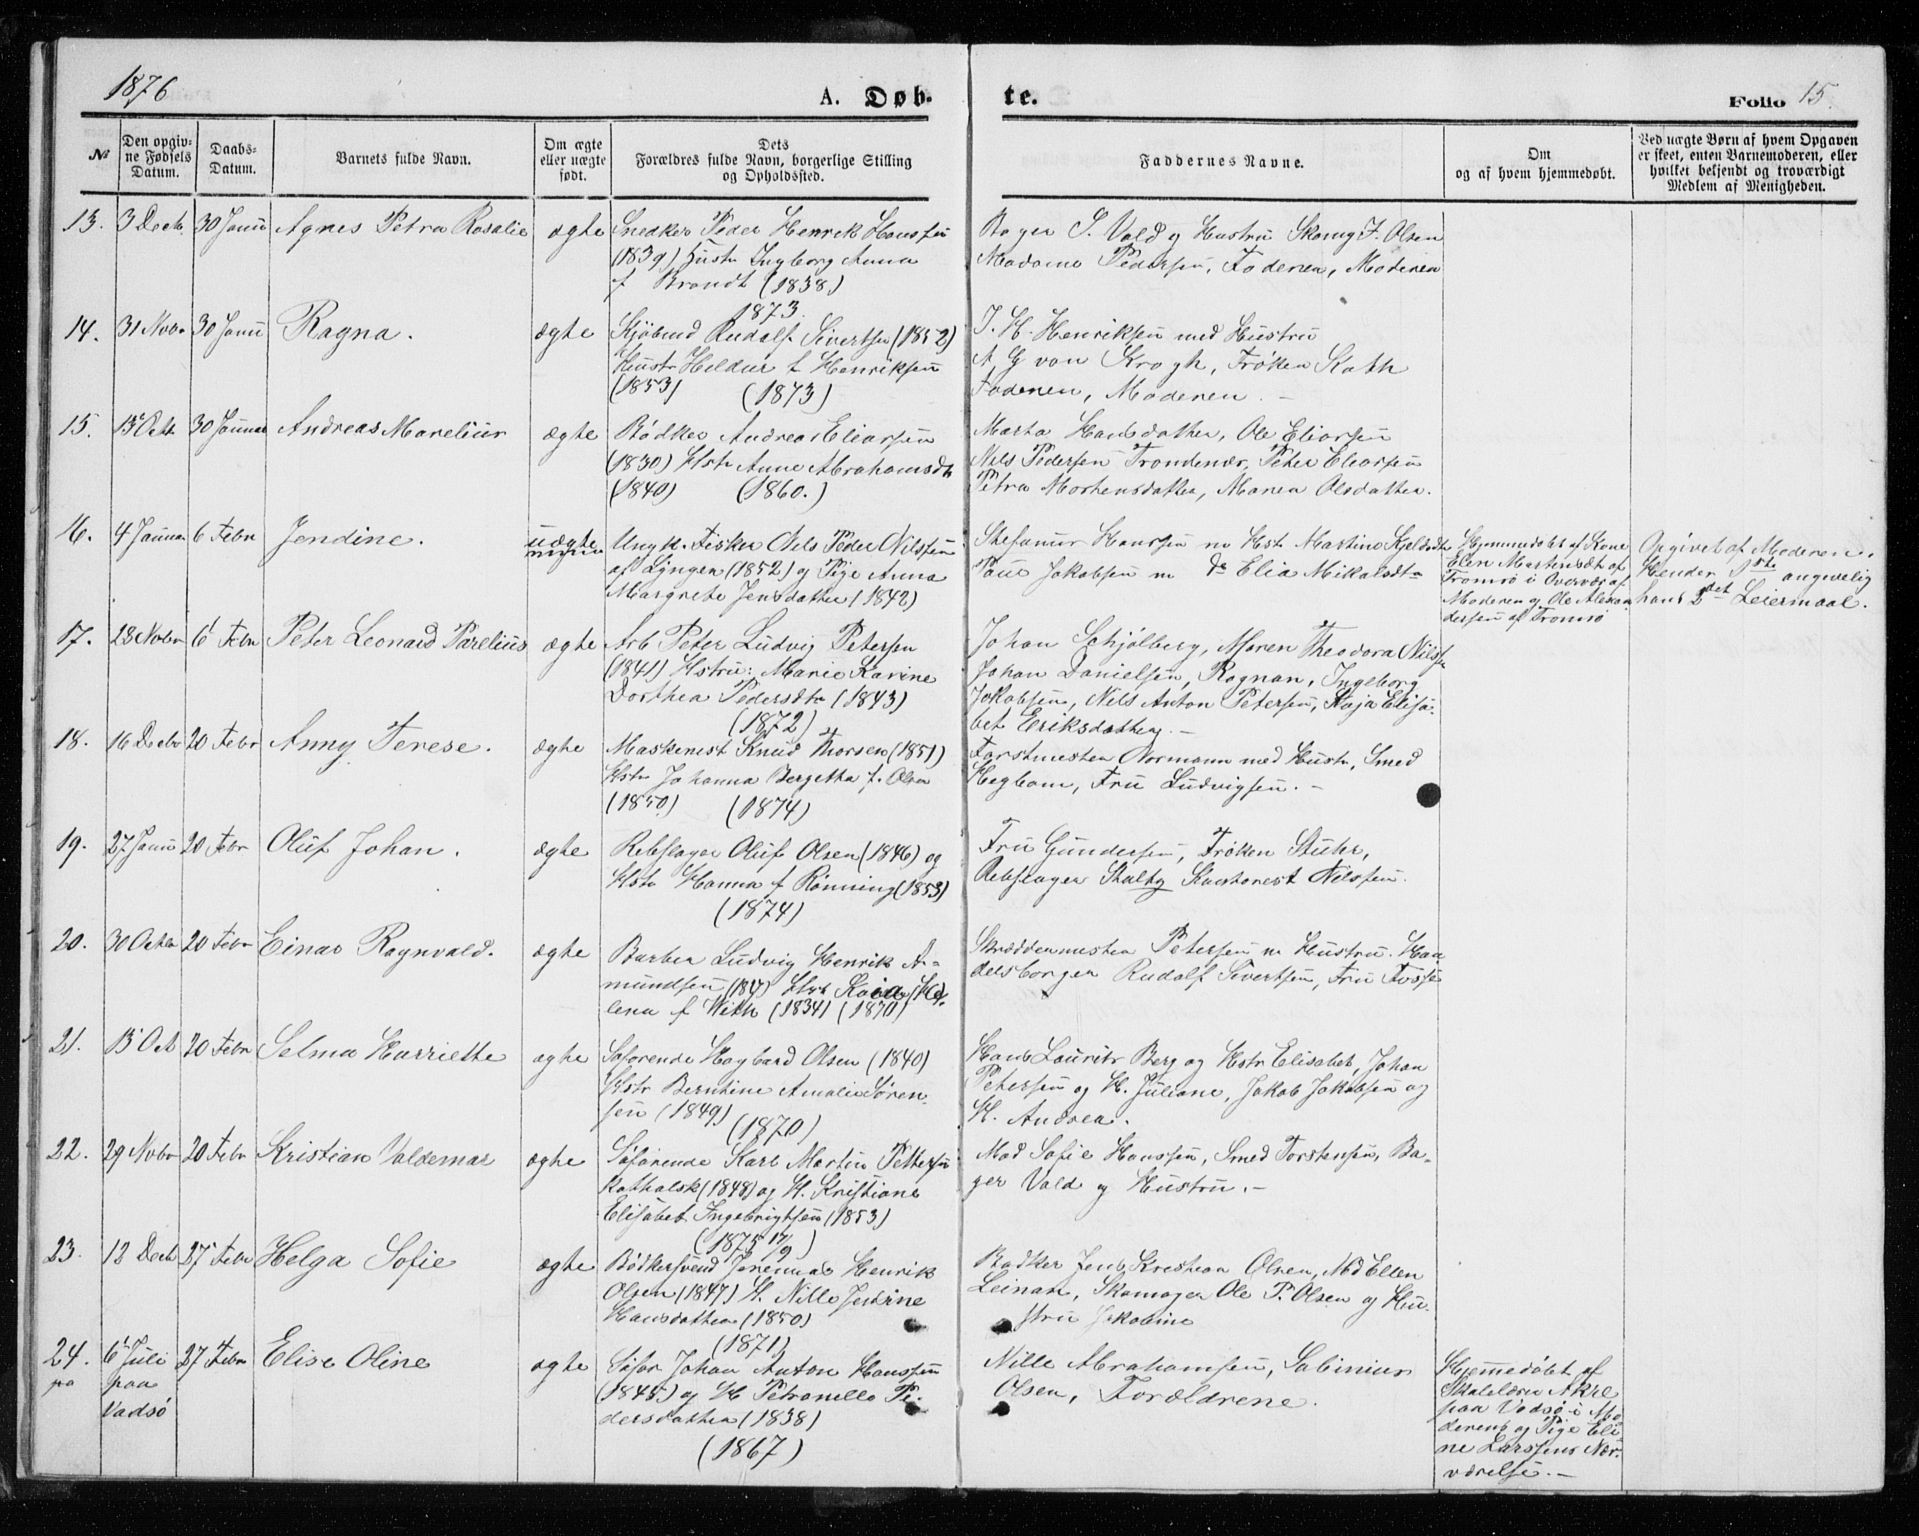 1876
A. Døb-
te.
Folio 15.
№
Den opgiv-
ne Fødsels
Datum.
Daabs-
Datum.
Barnets fulde Navn.
Om ægte
eller uægte
født.
Dets
Forældres fulde Navn, borgerlige Stilling
og Opholdssted.
Faddernes Navne.
Om
og af hvem hjemmedøbt.
Ved uægte Børn af hvem Opgaven
er skeet, enten Barnemoderen, eller
hvilket bekjendt og troværdigt
Medlem af Menigheden.
13. 3 Decb 30 Janu Agnes Petra Rosalie ægte Snedker Peder Henrik Hanssen
(1839) Hustr Ingborg Anna
f Brandt (1838)
1873.
Bager S. Vald og Hustru Skomg J. Olsen
Madame Pedersen, Faderen, Moderen
14. 31 Novbr 30 Janu Ragna. ægte Kjøbmd Rudolf Sivertsen (1852)
Hustr Heldur f Henriksen
(1853) (1873)
J. H. Henriksen med Hustru
A, G von Krogh, Frøken Kath
Faderen, Moderen. —
15. 15 Octb 30 Januar Andreas Marelius ægte Bødker Andreas Eliassen
(1830) Hstr Anne Abrahamsdtr
(1840) (1860.)
Marta Hansdatter, Ole Eliassen
Nils Pedersen Trondenæs, Peter Eliassen
Petra Mortensdatter, Maren Olsdatter.
16. 4 Januar 6 Febr Jendine. uægte Ungk. Fisker Nils Peder Nilssen
af Lyngen (1852) og Pige Anna
Margrete Jensdatter (1842)
Stefanus Hanssen m Hst Martine Kjeldsdtr
Paul Jakobsen m Do Elia Mikalsdtr
Hjemmedøbt af Kone
Elen Martinsdt af
Tromsø i Overvær af
Moderen og Ole Alexan
dersen af Tromsø
Opgivet af Moderen.
Hendes 1ste angivelig
hans 2det Leiermaal.
17. 28 Novbr 6 Febr Peter Leonard Parelius ægte Arb Peter Ludvig Petersen
(1841) Hstru: Marie Karine
Dorthea Pedersdtr (1843)
(1872)
Johan Schjølberg, Maren Theodora Nilss
Johan Danielsen, Ragnan, Ingeborg
Jakobsen, Nils Anton Petersen, Kaja Elisa-
bet Eriksdatter. —
18. 16 Decbr 20 Febr Anny Terese. ægte Maskinist Knud Thorsen (1851)
Hstr Johanna Bergetta f. Olsen
(1850) (1874)
Forstmester Normann med Hustr, Smed
Hegbom, Fru Ludvigsen. —
19. 27 Janu 20 Febr Oluf Johan. ægte Rebslager Oluf Olsen (1846) og
Hstr Hanna f Rønning (1853)
(1874)
Fru Gundersen, Frøken Stuhr,
Rebslager Skaltg Kantonist Nilssen.
20. 30 Octbr 20 Febr Einar Ragnvald. ægte Barber Ludvig Henrik A-
mundsen (1847) Hstr Kaia He-
lena f With (1834) (1870)
Skræddermester Petersen m Hustru. Han
delsborger Rudolf Sivertsen, Fru Fosse
21. 15 Oct 20 Febr Selma Harriette ægte Søfarende Hagbard Olsen (1840)
Hstr Berntine Amalie Søren-
sen (1849)
(1870)
Hans Laurits Berg og Hstr Elisabet, Johan
Petersen og H. Juliane, Jakob Jakobsen og
H. Andrea.
22. 29 Novbr 20 Febr Kristian Valdemar ægte Søfarende Karl Martin Pettersen
Katholsk (1848) og H. Kristiane
Elisabet Ingebrigtsen (1853)
(1875 17/9)
Mad Sofie Hanssen, Smed Torstensen, Ba-
ger Vald og Hustru. —
23. 12 Decb 27 Febr Helga Sofie ægte Bødkersvend Jeremias Henrik
Olsen (1847) H. Nille Jendine
Hansdatter (1850)
(1871)
Bødker Jens Kristian Olsen, Md Ellen
Leinan, Skomager Ole P. Olsen og Hu-
stru Jakobine
24. 6 Juli
paa
Vadsø
27 Febr Elise Oline ægte Søfar Johan Anton Hanssen
(1845) og H Petronelle Pe-
dersdatter (1838)
(1867)
Nille Abrahamsen, Sabinius
Olsen, Forældrene.
Hjemmedøbt af
Skolelærer Akre
paa Vadsø i Mo
derens og Pige Eli
ne Larssens Nær-
værelse. —